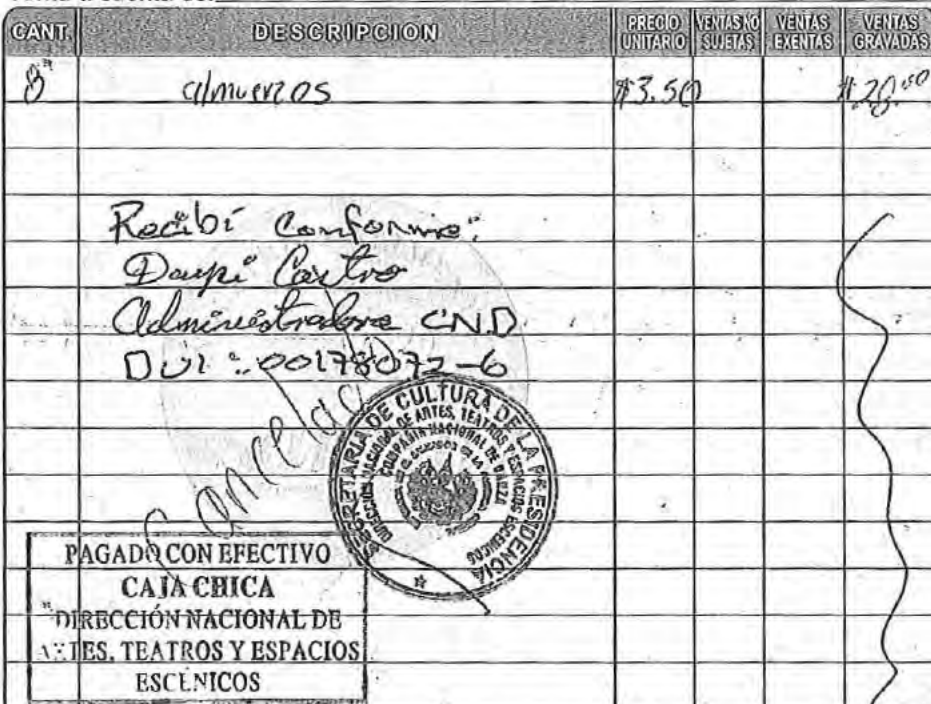 CANT. DESCRIPCION PRECIO UNITARIO VENTAS NO SUJETAS VENTAS EXENTAS VENTAS GRAVADAS
8 almuerzos $3.50 $28.00
Recibí Conforme:
Castro
Administradora C.N.D
DUI: 00178077-6
Cancelado
SECRETARIA DE CULTURA DE LA PRESIDENCIA
DIRECCION NACIONAL DE ARTES, TEATROS Y ESPACIOS ESCENICOS
COMPAÑIA NACIONAL DE DANZA
PAGADO CON EFECTIVO
CAJA CHICA
DIRECCIÓN NACIONAL DE
ARTES, TEATROS Y ESPACIOS
ESCÉNICOS